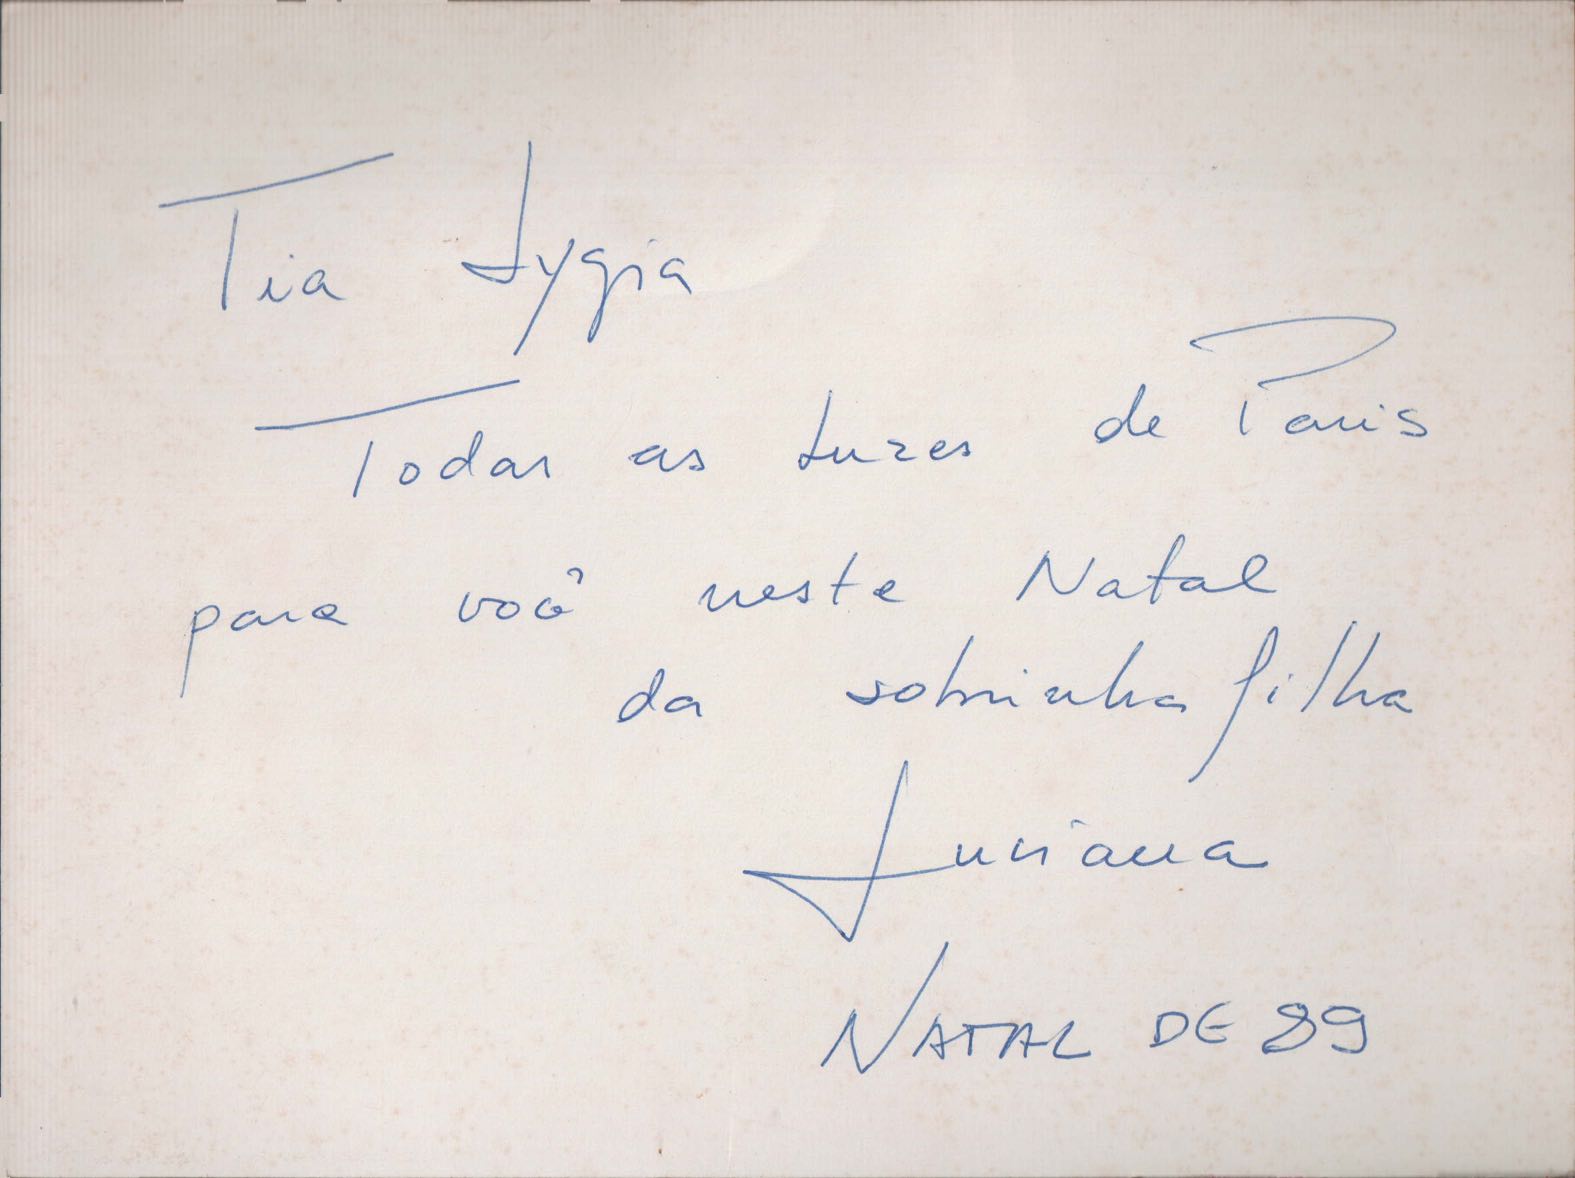 Tia Lygia
Todas as Luzes de Paris
para você neste Natal
da sobrinha filha
Luciana
NATAL DE 89